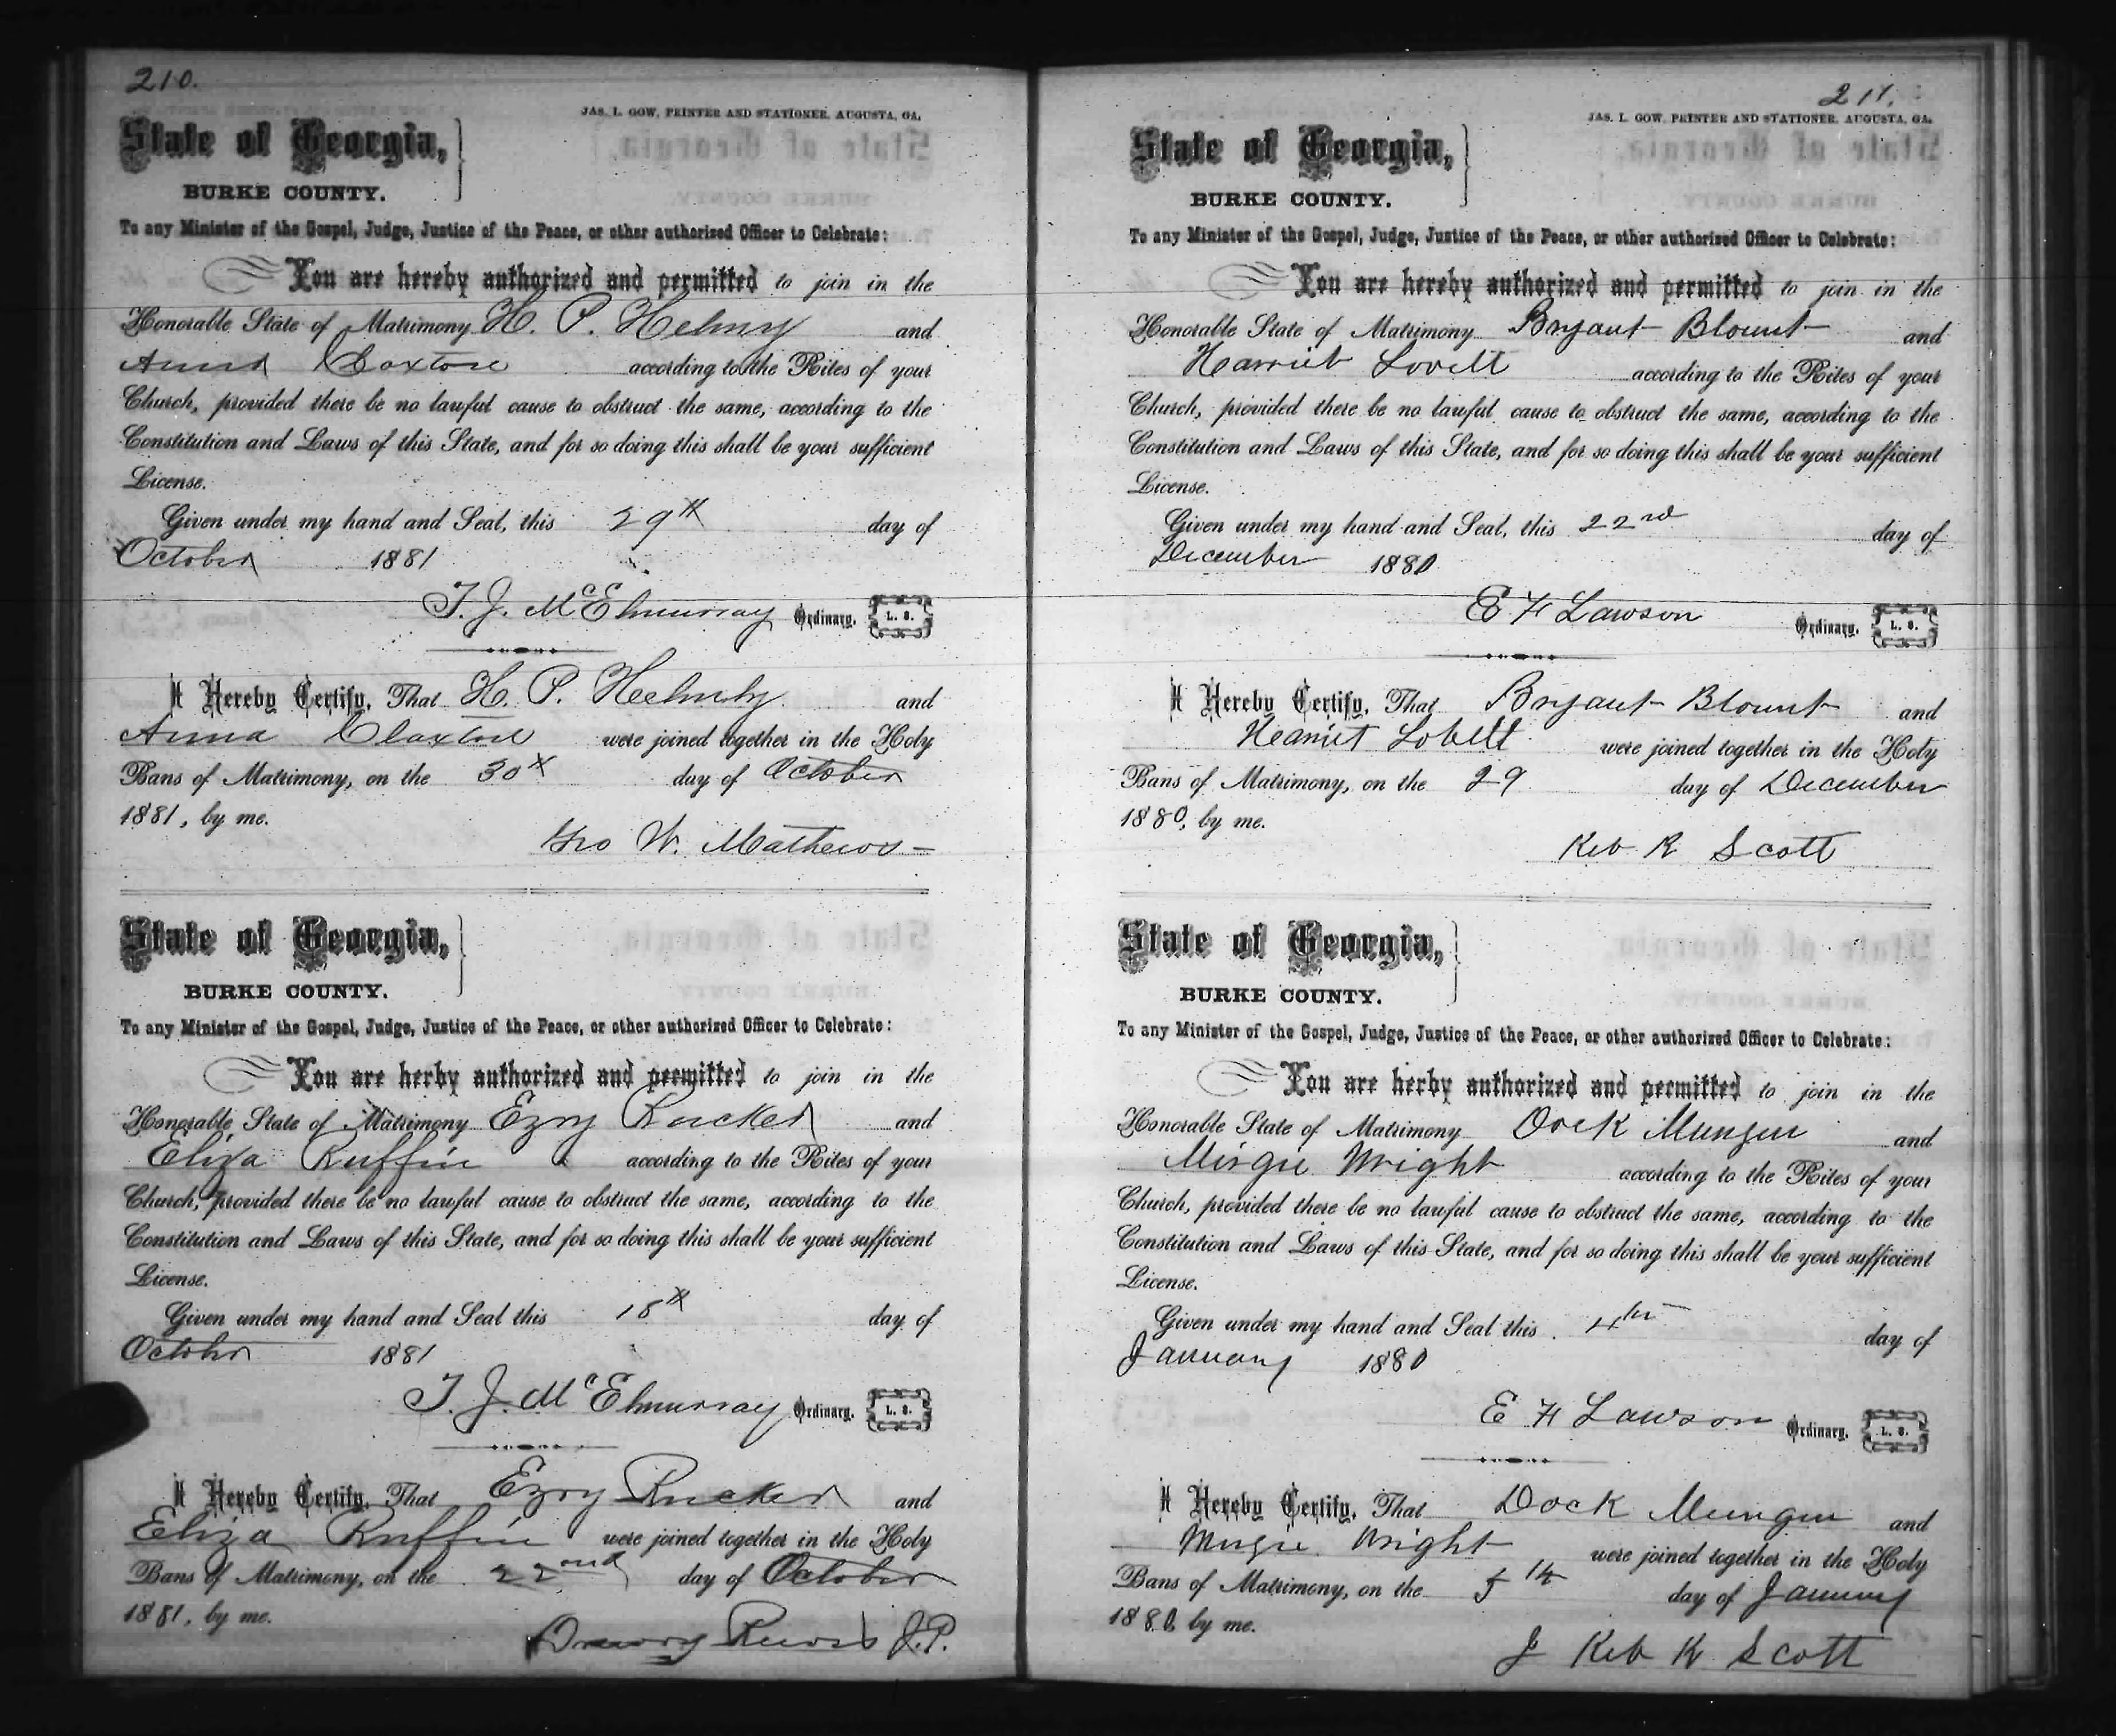 210.
JAS. L. GOW, PRINTER AND STATIONER, AUGUSTA, GA.
State of Georgia,
BURKE COUNTY.
To any Minister of the Gospel, Judge, Justice of the Peace, or other authorized Officer to Celebrate:
You are hereby authorized and permitted to join in the
Honorable State of Matrimony H. P. Helmy and
Anna Claxton according to the Rites of your
Church, provided there be no lawful cause to obstruct the same, according to the
Constitution and Laws of this State, and for so doing this shall be your sufficient
License.
Given under my hand and Seal, this 29th day of
October 1881
T. J. McElmurray Ordinary. L. S.
I Hereby Certify, That H. P. Helmly and
Anna Claxton were joined together in the Holy
Bans of Matrimony, on the 30th day of October
1881, by me.
Geo W. Mathews
State of Georgia,
BURKE COUNTY.
To any Minister of the Gospel, Judge, Justice of the Peace, or other authorized Officer to Celebrate:
You are herby authorized and permitted to join in the
Honorable State of Matrimony Ezry Rucker and
Eliza Ruffin according to the Rites of your
Church, provided there be no lawful cause to obstruct the same, according to the
Constitution and Laws of this State, and for so doing this shall be your sufficient
License.
Given under my hand and Seal this 18th day of
October 1881
T. J. McElmurray Ordinary. L. S.
I Hereby Certify, That Ezry Rucker and
Eliza Ruffin were joined together in the Holy
Bans of Matrimony, on the 22nd day of October
1881, by me.
Drewry J.P.
211.
JAS. L. GOW, PRINTER AND STATIONER, AUGUSTA, GA.
State of Georgia,
BURKE COUNTY.
To any Minister of the Gospel, Judge, Justice of the Peace, or other authorized Officer to Celebrate:
You are hereby authorized and permitted to join in the
Honorable State of Matrimony Bryant Blount and
Harriet Lovett according to the Rites of your
Church, provided there be no lawful cause to obstruct the same, according to the
Constitution and Laws of this State, and for so doing this shall be your sufficient
License.
Given under my hand and Seal, this 22nd day of
December 1880
E F Lawson Ordinary. L. S.
I Hereby Certify, That Bryant Blount and
Harriet Lobett were joined together in the Holy
Bans of Matrimony, on the 29 day of December
1880, by me.
Reb R Scott
State of Georgia,
BURKE COUNTY.
To any Minister of the Gospel, Judge, Justice of the Peace, or other authorized Officer to Celebrate:
You are herby authorized and permitted to join in the
Honorable State of Matrimony Dock Mungin and
Mirgie Wright according to the Rites of your
Church, provided there be no lawful cause to obstruct the same, according to the
Constitution and Laws of this State, and for so doing this shall be your sufficient
License.
Given under my hand and Seal this 4th day of
January 1880
E F Lawson Ordinary. L. S.
I Hereby Certify, That Dock Mungin and
Mirgie Wright were joined together in the Holy
Bans of Matrimony, on the 5th day of January
1880, by me.
Reb R Scott